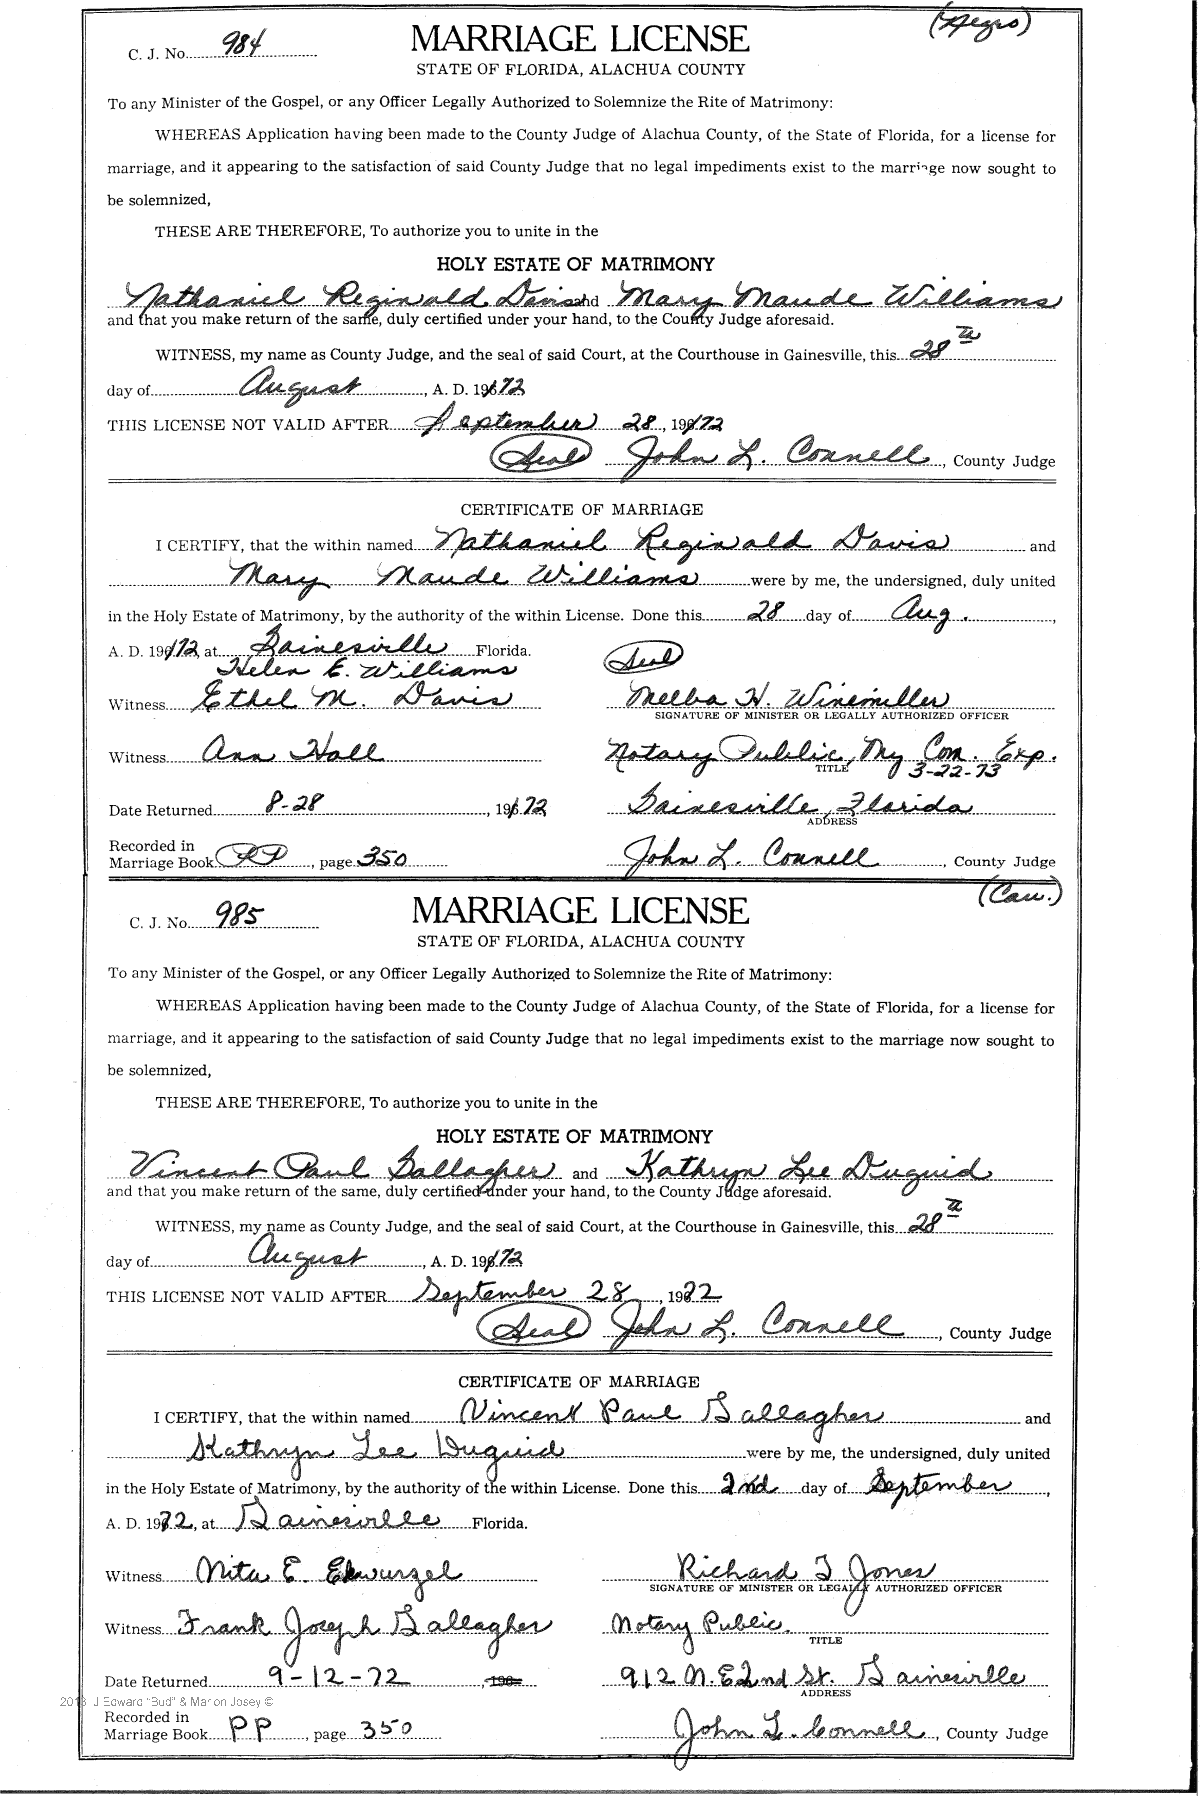 (Negro)
C. J. No. 984 MARRIAGE LICENSE
STATE OF FLORIDA, ALACHUA COUNTY
To any Minister of the Gospel, or any Officer Legally Authorized to Solemnize the Rite of Matrimony:
WHEREAS Application having been made to the County Judge of Alachua County, of the State of Florida, for a license for
marriage, and it appearing to the satisfaction of said County Judge that no legal impediments exist to the marriage now sought to
be solemnized,
THESE ARE THEREFORE, To authorize you to unite in the
HOLY ESTATE OF MATRIMONY
Nathaniel Reginald Davis and Mary Maude Williams
and that you make return of the same, duly certified under your hand, to the County Judge aforesaid.
WITNESS, my name as County Judge, and the seal of said Court, at the Courthouse in Gainesville, this 28th
day of August, A. D. 1972
THIS LICENSE NOT VALID AFTER September 28, 1972
(Seal) John L. Connell, County Judge
CERTIFICATE OF MARRIAGE
I CERTIFY, that the within named Nathaniel Reginald Davis and
Mary Maude Williams were by me, the undersigned, duly united
in the Holy Estate of Matrimony, by the authority of the within License. Done this 28 day of Aug.,
A. D. 1972, at Gainesville Florida. (Seal)
Helen E. Williams
Witness Ethel M. Davis Melba H. Winemiller
SIGNATURE OF MINISTER OR LEGALLY AUTHORIZED OFFICER
Witness Ann Hall Notary Public, My Com. Exp.
TITLE 3-22-73
Date Returned 8-28, 1972 Gainesville, Florida
ADDRESS
Recorded in
Marriage Book PP, page 350 John L. Connell, County Judge
(Cau.)
C. J. No. 985 MARRIAGE LICENSE
STATE OF FLORIDA, ALACHUA COUNTY
To any Minister of the Gospel, or any Officer Legally Authorized to Solemnize the Rite of Matrimony:
WHEREAS Application having been made to the County Judge of Alachua County, of the State of Florida, for a license for
marriage, and it appearing to the satisfaction of said County Judge that no legal impediments exist to the marriage now sought to
be solemnized,
THESE ARE THEREFORE, To authorize you to unite in the
HOLY ESTATE OF MATRIMONY
Vincent Paul Gallagher and Kathryn Lee Duguid
and that you make return of the same, duly certified under your hand, to the County Judge aforesaid.
WITNESS, my name as County Judge, and the seal of said Court, at the Courthouse in Gainesville, this 28th
day of August, A. D. 1972
THIS LICENSE NOT VALID AFTER September 28, 1972
(Seal) John L. Connell, County Judge
CERTIFICATE OF MARRIAGE
I CERTIFY, that the within named Vincent Paul Gallagher and
Kathryn Lee Duguid were by me, the undersigned, duly united
in the Holy Estate of Matrimony, by the authority of the within License. Done this 2nd day of September,
A. D. 1972, at Gainesville Florida.
Witness Nita E. Ekwurzel Richard T Jones
SIGNATURE OF MINISTER OR LEGALLY AUTHORIZED OFFICER
Witness Frank Joseph Gallagher Notary Public.
TITLE
Date Returned 9-12-72, 196 912 N.E 2nd St. Gainesville
ADDRESS
2018 J Edward "Bud" & Marion Josey ©
Recorded in
Marriage Book PP, page 350 John L. Connell, County Judge